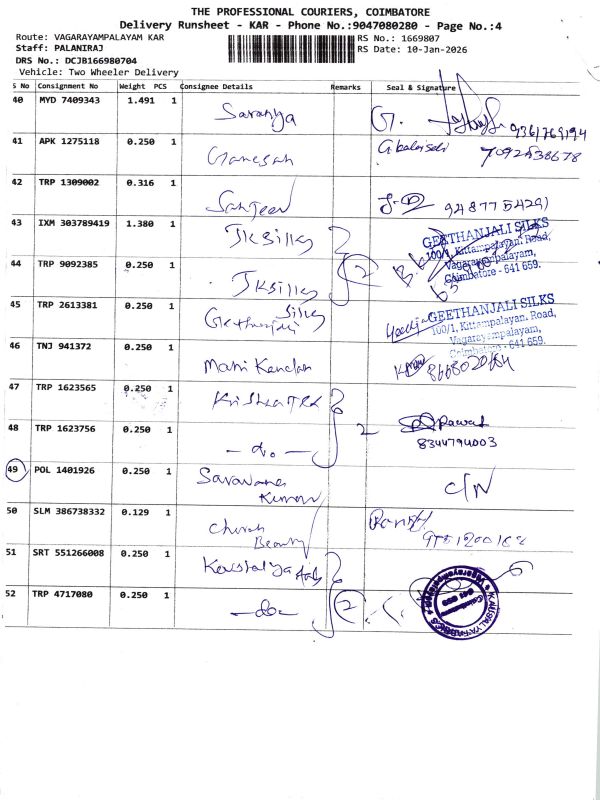 THE PROFESSIONAL COURIERS, COIMBATORE
Delivery Runsheet - KAR - Phone No.:9047080280 - Page No.:4
Route: VAGARAYAMPALAYAM KAR
RS No.: 1669807
Staff: PALANIRAJ
RS Date: 10-Jan-2026
DRS No.: DCJB166980704
Vehicle: Two Wheeler Delivery
S No Consignment No Weight PCS Consignee Details Remarks Seal & Signature
40 MYD 7409343 1.491 1 Saranya
41 APK 1275118 0.250 1 Ganesan
7092838678
42 TRP 1309002 0.316 1 Sanjeev
9487754291
43 IXM 303789419 1.380 1 JKSilks
GEETHANJALI SILKS
100/1, Kittampalayam Road,
Vagarayampalayam,
Coimbatore - 641 659.
44 TRP 9092385 0.250 1 JKSilks 2
45 TRP 2613381 0.250 1 Geethanjali Silks
GEETHANJALI SILKS
100/1, Kittampalayam. Road,
Vagarayampalayam,
Coimbatore - 641 659.
46 TNJ 941372 0.250 1 Mani Kandan
8668020684
47 TRP 1623565 0.250 1
48 TRP 1623756 0.250 1 -do- 2
8344794003
49 POL 1401926 0.250 1 Saravana
Kumar
C/N
50 SLM 386738332 0.129 1
Beauty
51 SRT 551266008 0.250 1 Kausalya
52 TRP 4717080 0.250 1 -do- 2